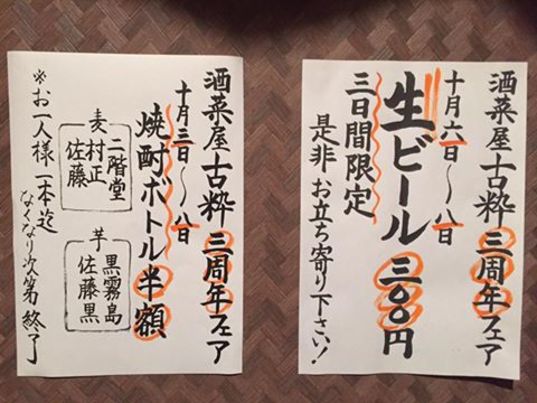 酒菜屋古粋 三周年フェア
十月六日〜八日
生ビール 三〇〇円
三日間限定
是非 お立ち寄り下さい！
酒菜屋古粋 三周年フェア
十月三日〜八日
焼酎ボトル半額
麦
二階堂
村正
佐藤
芋
黒霧島
佐藤黒
※お一人様 一本迄
なくなり次第 終了